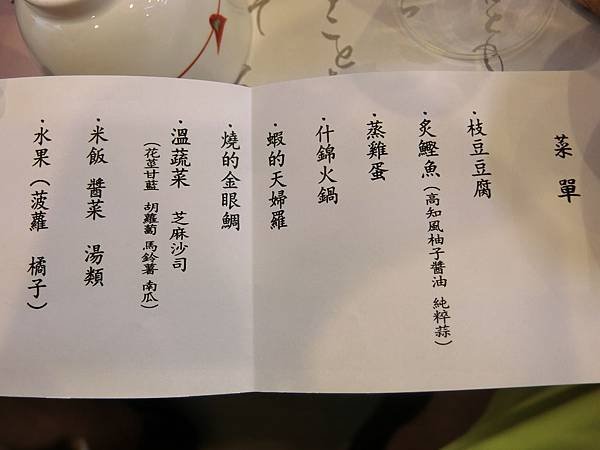 菜單
·枝豆豆腐
·炙鰹魚(高知風柚子醬油 純粹蒜)
·蒸雞蛋
·什錦火鍋
·蝦的天婦羅
·燒的金眼鯛
·溫蔬菜 芝麻沙司
(花莖甘藍 胡蘿蔔 馬鈴薯 南瓜)
·米飯 醬菜 湯類
·水果(菠蘿 橘子)